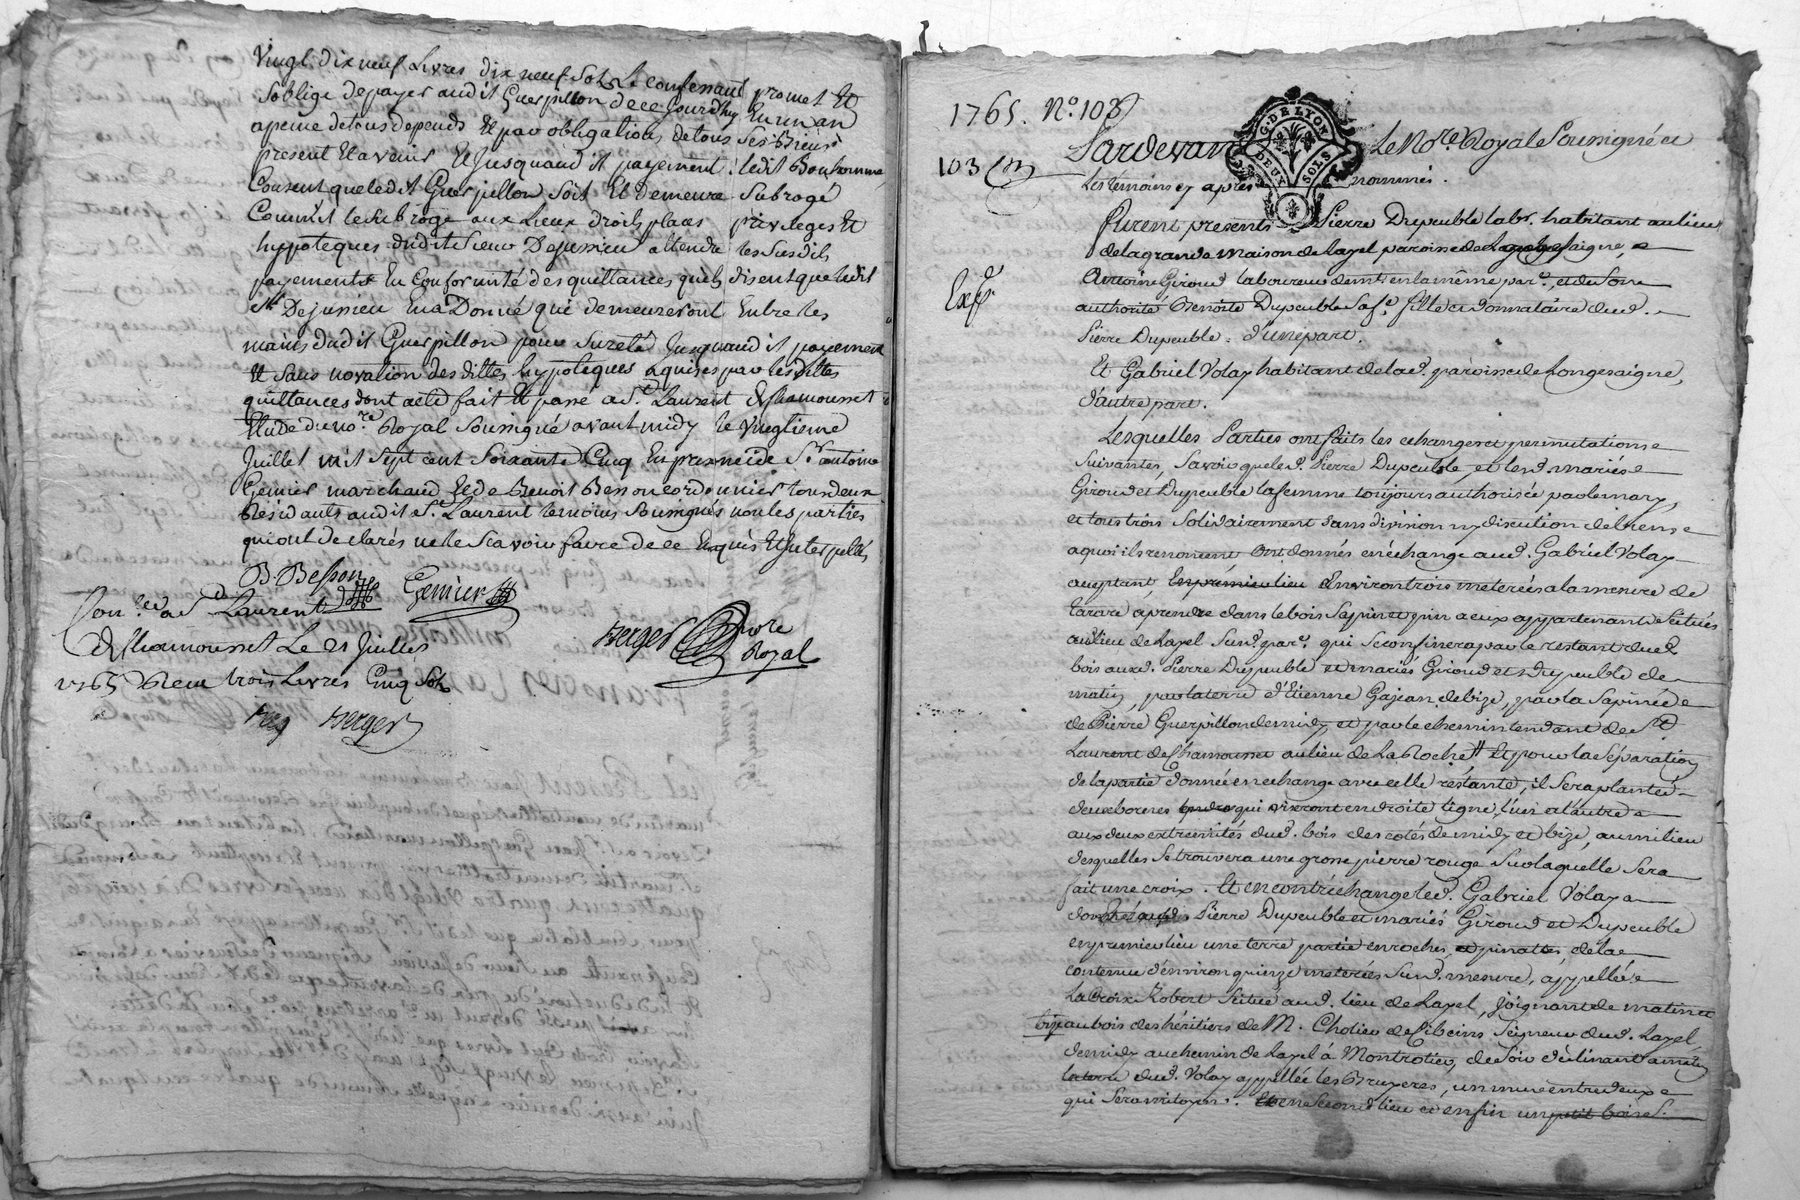 Vingt dix neuf Livres dix neuf Sols Le confessant promet Et
Soblige de payer audit Guerpillon de ce Jourdhuy En un an
apeine de tous depends Et par obligation de tous Ses Biens
present Et avenir Et Jusquaudit payement ledit Bonhomme
Consent que ledit Guerpillon Soit Et demeure Subrogé
Comm'il le Subroge aux Lieux droits places privileges Et
hypoteques dudit Sieur Dejussieu attendre les Susdits
payements En Conformité des quittances qu'ils disent que ledit
Sr. Dejussieu En a Donné qui demeureront Entre les
mains dudit Guerpillon pour Sureté Jusquaudit payement
Et Sans novation des dittes hypoteques aquises par lesdittes
quittances dont acte fait Et passé a St. Laurent De Chamousset
Etude du no.re Royal Soussigné avant midy le Vingtieme
Juillet mil Sept cent Soixante Cinq En presence de Sr. antoine
Genier marchand Et de Benoit Besson cordonnier tous deux
Residants audit St. Laurent temoins Soussignés non les parties
qui ont declarés ne le Scavoir faire de ce Enquis Et Interpellés
B. Besson Genier
Con.lé a St Laurent
De Chamousset Le 21 Juillet
1765 Receu trois Livres Cinq Sols
Berger no.re Royal
Reg Berger
1765. No. 103
103
G. DE LYON
DEUX SOLS
Pardevant Le No.re Royal Soussigné et
Les temoins cy apres nommés.
Furent presents Pierre Dupeuble labr. habitant au lieu
de la grande maison de Lazel paroisse de Longesaigne, et
Exp.
Antoine Giroud laboureur demt. en la même par.e, et de Son
authorité Benoite Dupeuble Sa fe. fille et donnataire dud.
Pierre Dupeuble. d'une part.
Et Gabriel Volay habitant de lad. paroisse de Longesaigne,
d'autre part.
Lesquelles Parties ont faits les echanges et permutations
Suivantes, Savoir que led. Pierre Dupeuble, et lesd. mariés
Giroud et Dupeuble la femme toujours authorisée par le mary,
et tous trois Solidairement Sans division ny discution de biens
a quoi ils renoncent Ont donnés en échange aud. Gabriel Volay
acceptant, En premier lieu Environ trois meterées a la mesure de
tarare a prendre dans le bois Sapin et pin a eux appartenant Scitués
au lieu de Lazel Susd. par.e qui Se confinera par le restant dud.
bois auxd. Pierre Dupeuble et mariés Giroud et Dupeuble de
matin, par la terre d'Etienne Gajean de bize, par la Sapinée
de Pierre Guerpillon de midy et par le chemin tendant de St.
Laurent de Chamousset au lieu de La Roche Et pour la Séparation
de la partie donnée en échange avec celle restante, il Sera planté
deux bornes qui viseront en droite ligne l'un a l'autre
aux deux extremités dud. bois des cotés de midy et bize, au milieu
desquelles Se trouvera une grosse pierre rouge Sur laquelle Sera
fait une croix. Et en contréchange led. Gabriel Volay a
donné auxd. Pierre Dupeuble et mariés Giroud et Dupeuble
en premier lieu une terre partie en roches, et pinattes, de la
contenue d'environ quinze meterées Susd. mesure, appellée
La Croix Robert Scitué aud. lieu de Lazel, joignant de matin et
bize au bois des héritiers de M. Cholier de Cibeins Seigneur dud. Lazel
de midy au chemin de Lazel à Montrotier, de Soir déclinant a midy
la terre dud. Volay appellée les Bruyeres, un mur entre deux
qui Sera mitoyen. Et en Second lieu et enfin un petit bois